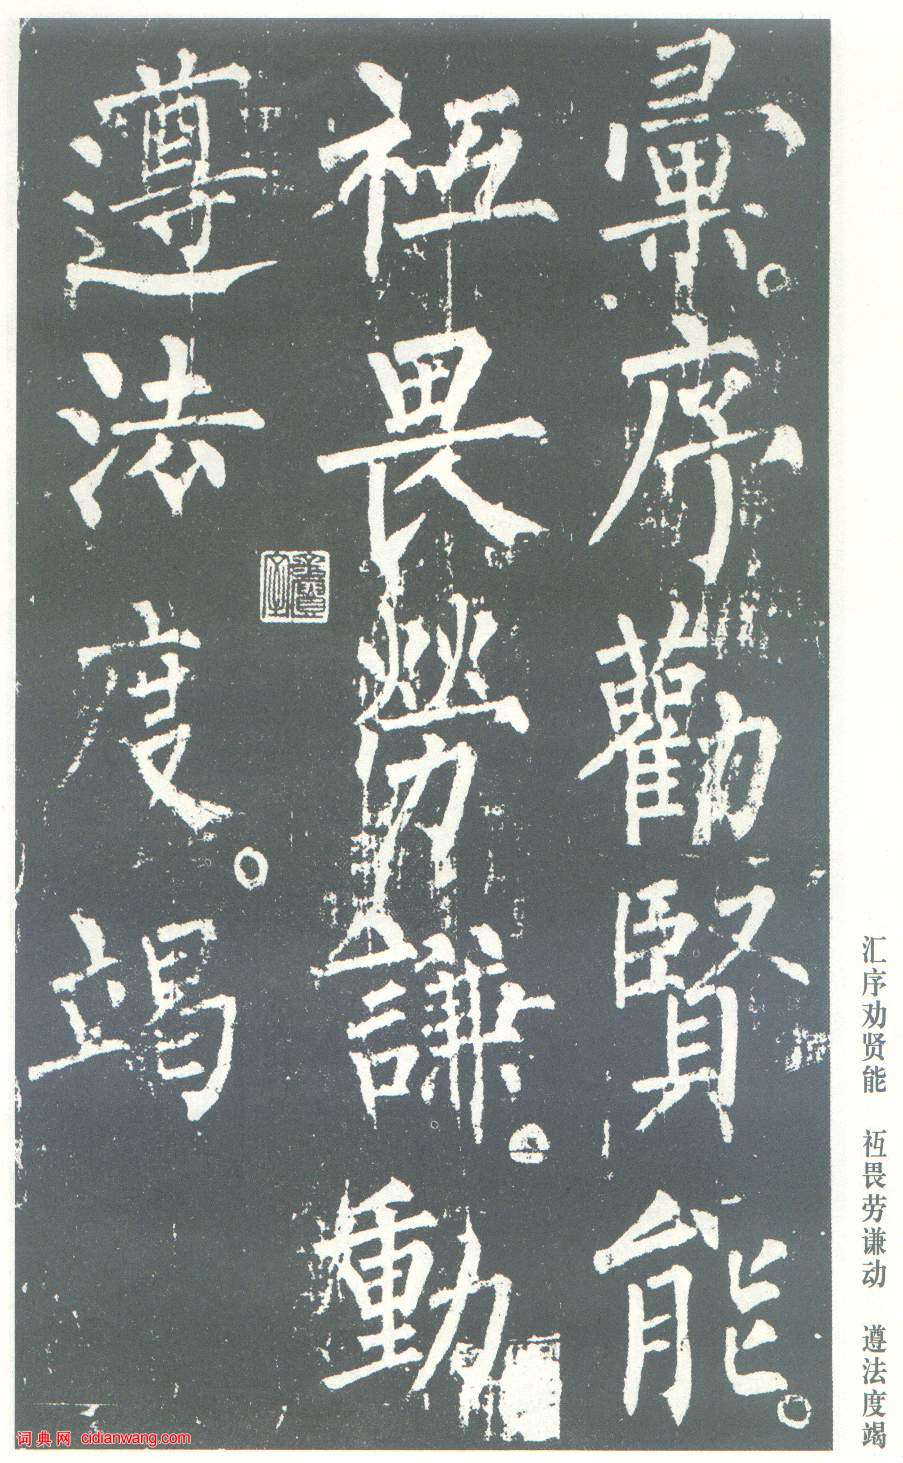 彙序勸賢能
祗畏勞謙動
遵法度竭
汇序劝贤能 祗畏劳谦动 遵法度竭
词典网 cidianwang.com